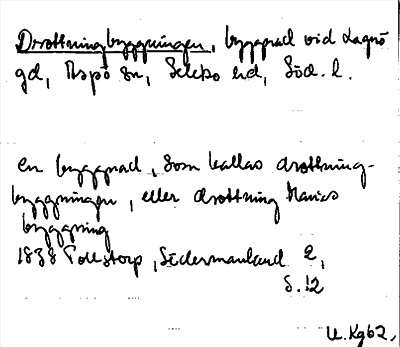 Drottningbyggningen, byggnad vid Lagnö
gd, Aspö sn, Selebo hd, Söd. l.
en byggnad, som kallas drottning-
byggningen, eller drottning Marias
byggning
1838 Tollstorp, Södermanland 2,
S. 12
U. Kg 62.